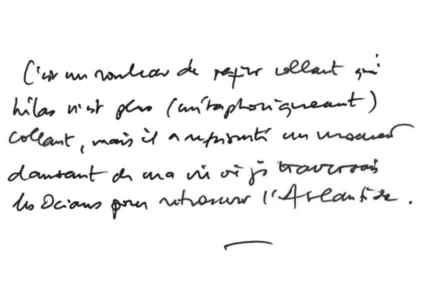 C'est un rouleau de papier collant qui
hélas n'est plus (métaphoriquement)
collant, mais il a représenté un moment
dansant de ma vie où je traversais
les Océans pour retrouver l'Atlantide.